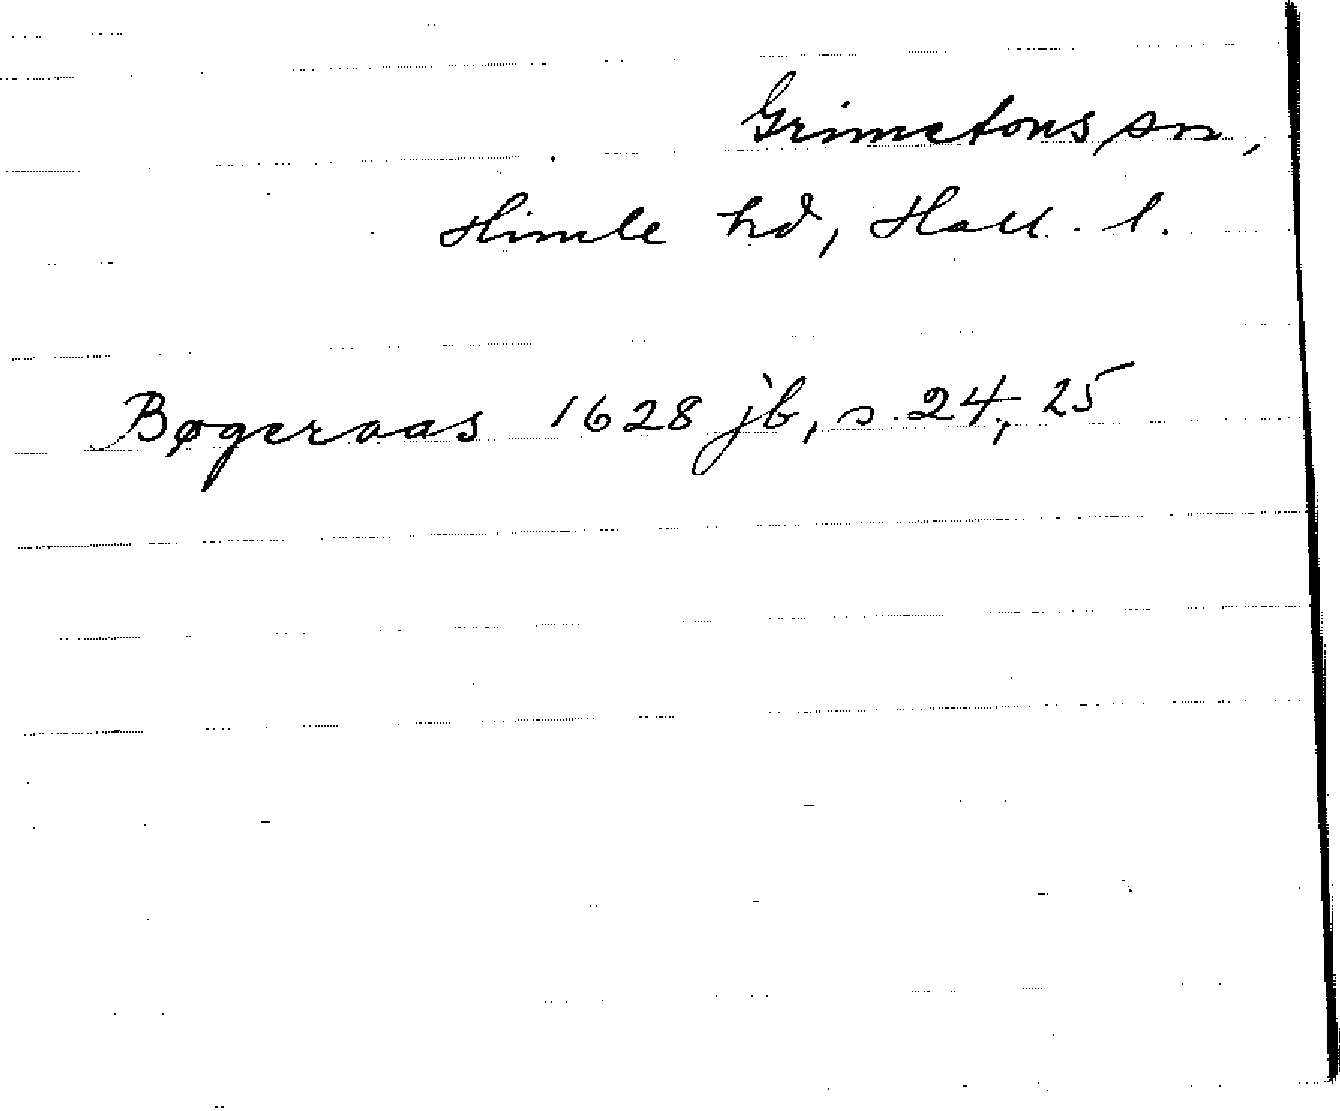 Grimetons sn,
Himle hd, Hall. l.
Bøgeraas 1628 jb, s. 24, 25